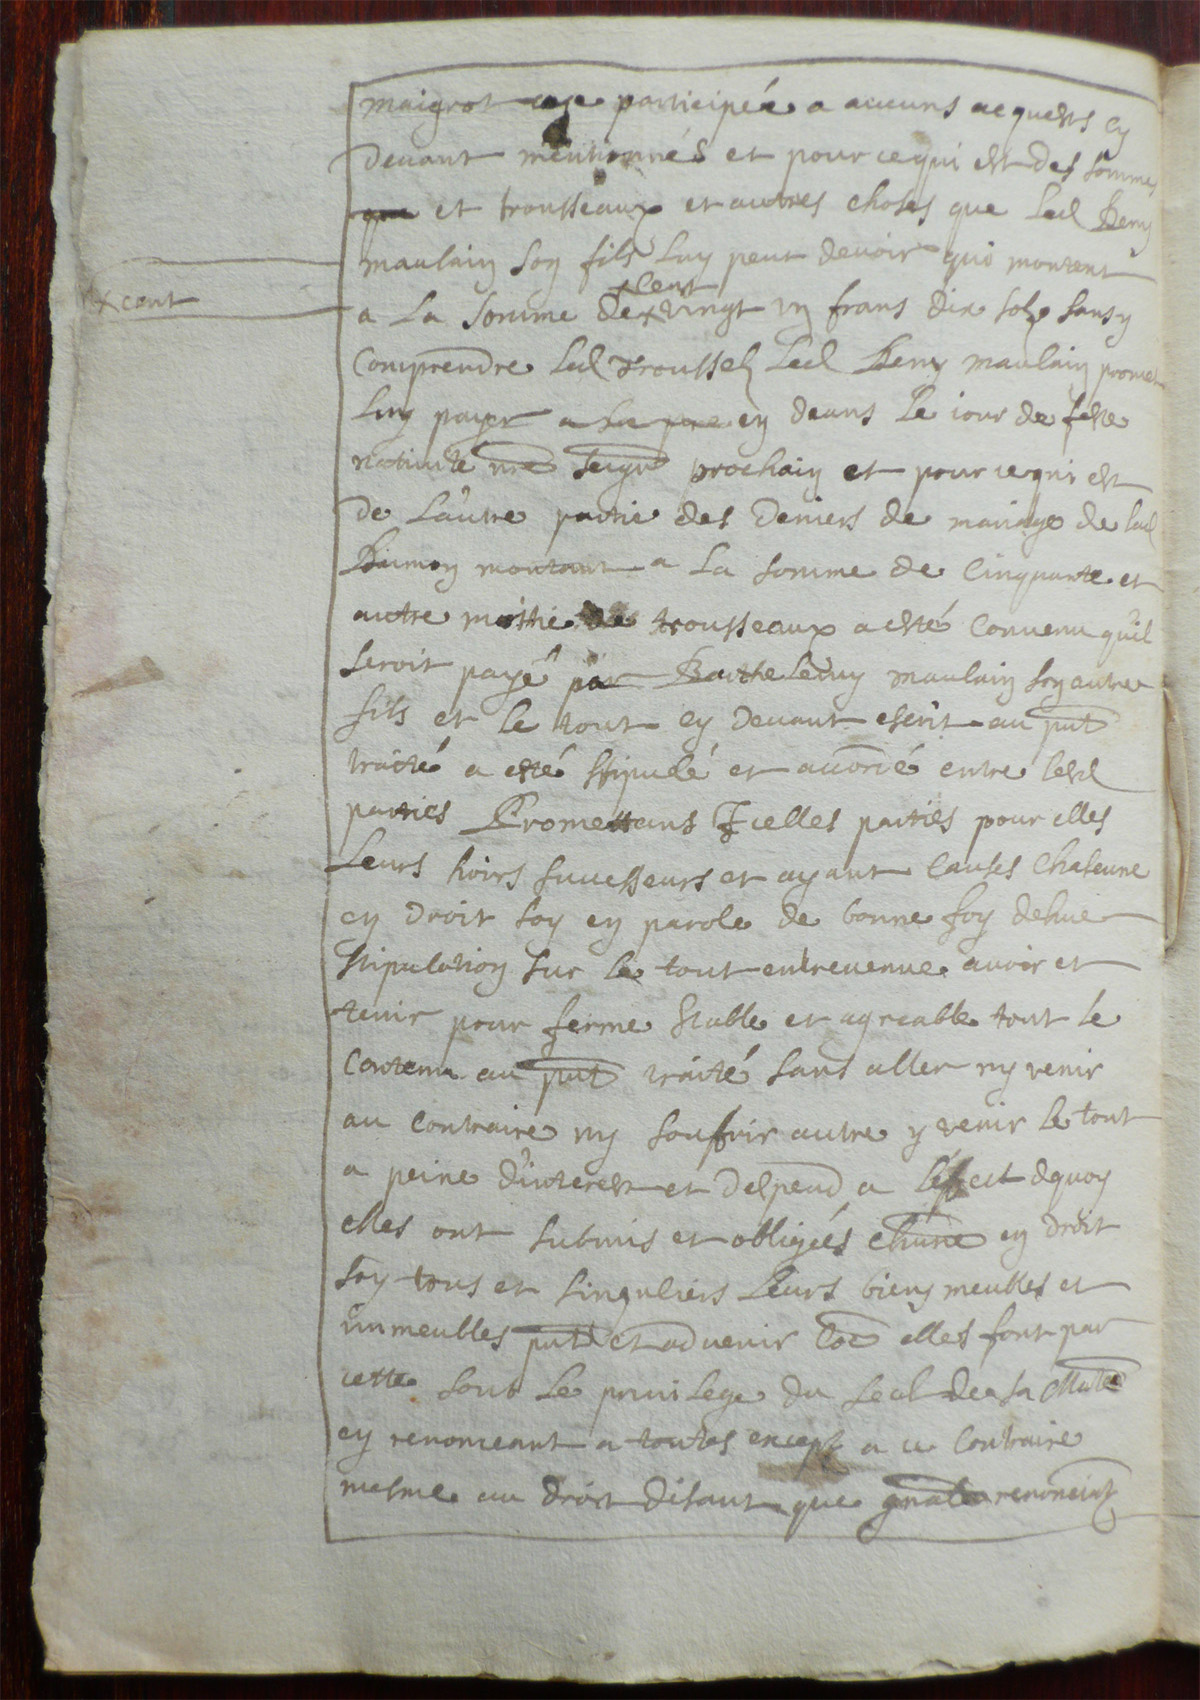 maigrot aye participée a aucuns acquests cy
devant mentionnés et pour ce qui est des sommes
et trousseaux et autres choses que led Remy
maulain son fils luy peut devoir qui montent
a la somme de x cent vingt un frans dix solz sans y
x cent
comprendre led troussel led Remy maulain promet
luy payer en deans le iour de feste
nativité nre seigr prochain et pour ce qui est
de l'autre partie des deniers de mariage de lad
montant a la somme de cinquante et
autre moitie de trousseaux a esté convenu qu'il
seroit payé par Barthelemy maulain son autre
fils et le tout cy devant escrit au pnt
traité a esté stipulé et accordé entre lesd
parties Promettans Icelles parties pour elles
Leurs hoirs successeurs et ayant causes chascune
en droit soy en parole de bonne foy dehue
stipulation sur le tout entrevenue avoir et
tenir pour ferme stable et agreable tout le
contenu au pnt traité sans aller ny venir
au contraire ny souffrir autre y venir le tout
a peine d'interest et despend a l'effect dquoy
elles ont submis et obligées chune en droit
soy tous et singuliers leurs biens meubles et
immeubles pnts et advenir elles font par
cette sout le privilege du seel de sa Matée
en renonceant a toutes except a ce contraire
mesme au droit disant que gnale renonciat